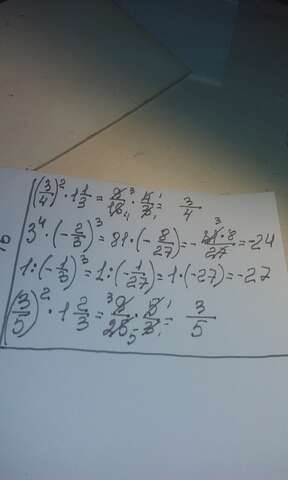 (3/4)² · 1 1/3 = 9/16 · 4/3 = 3/4
3⁴ · (-2/3)³ = 81 · (-8/27) = - 81·8/27 = -24
1 : (-1/3)³ = 1 : (-1/27) = 1 · (-27) = -27
(3/5)² · 1 2/3 = 9/25 · 5/3 = 3/5